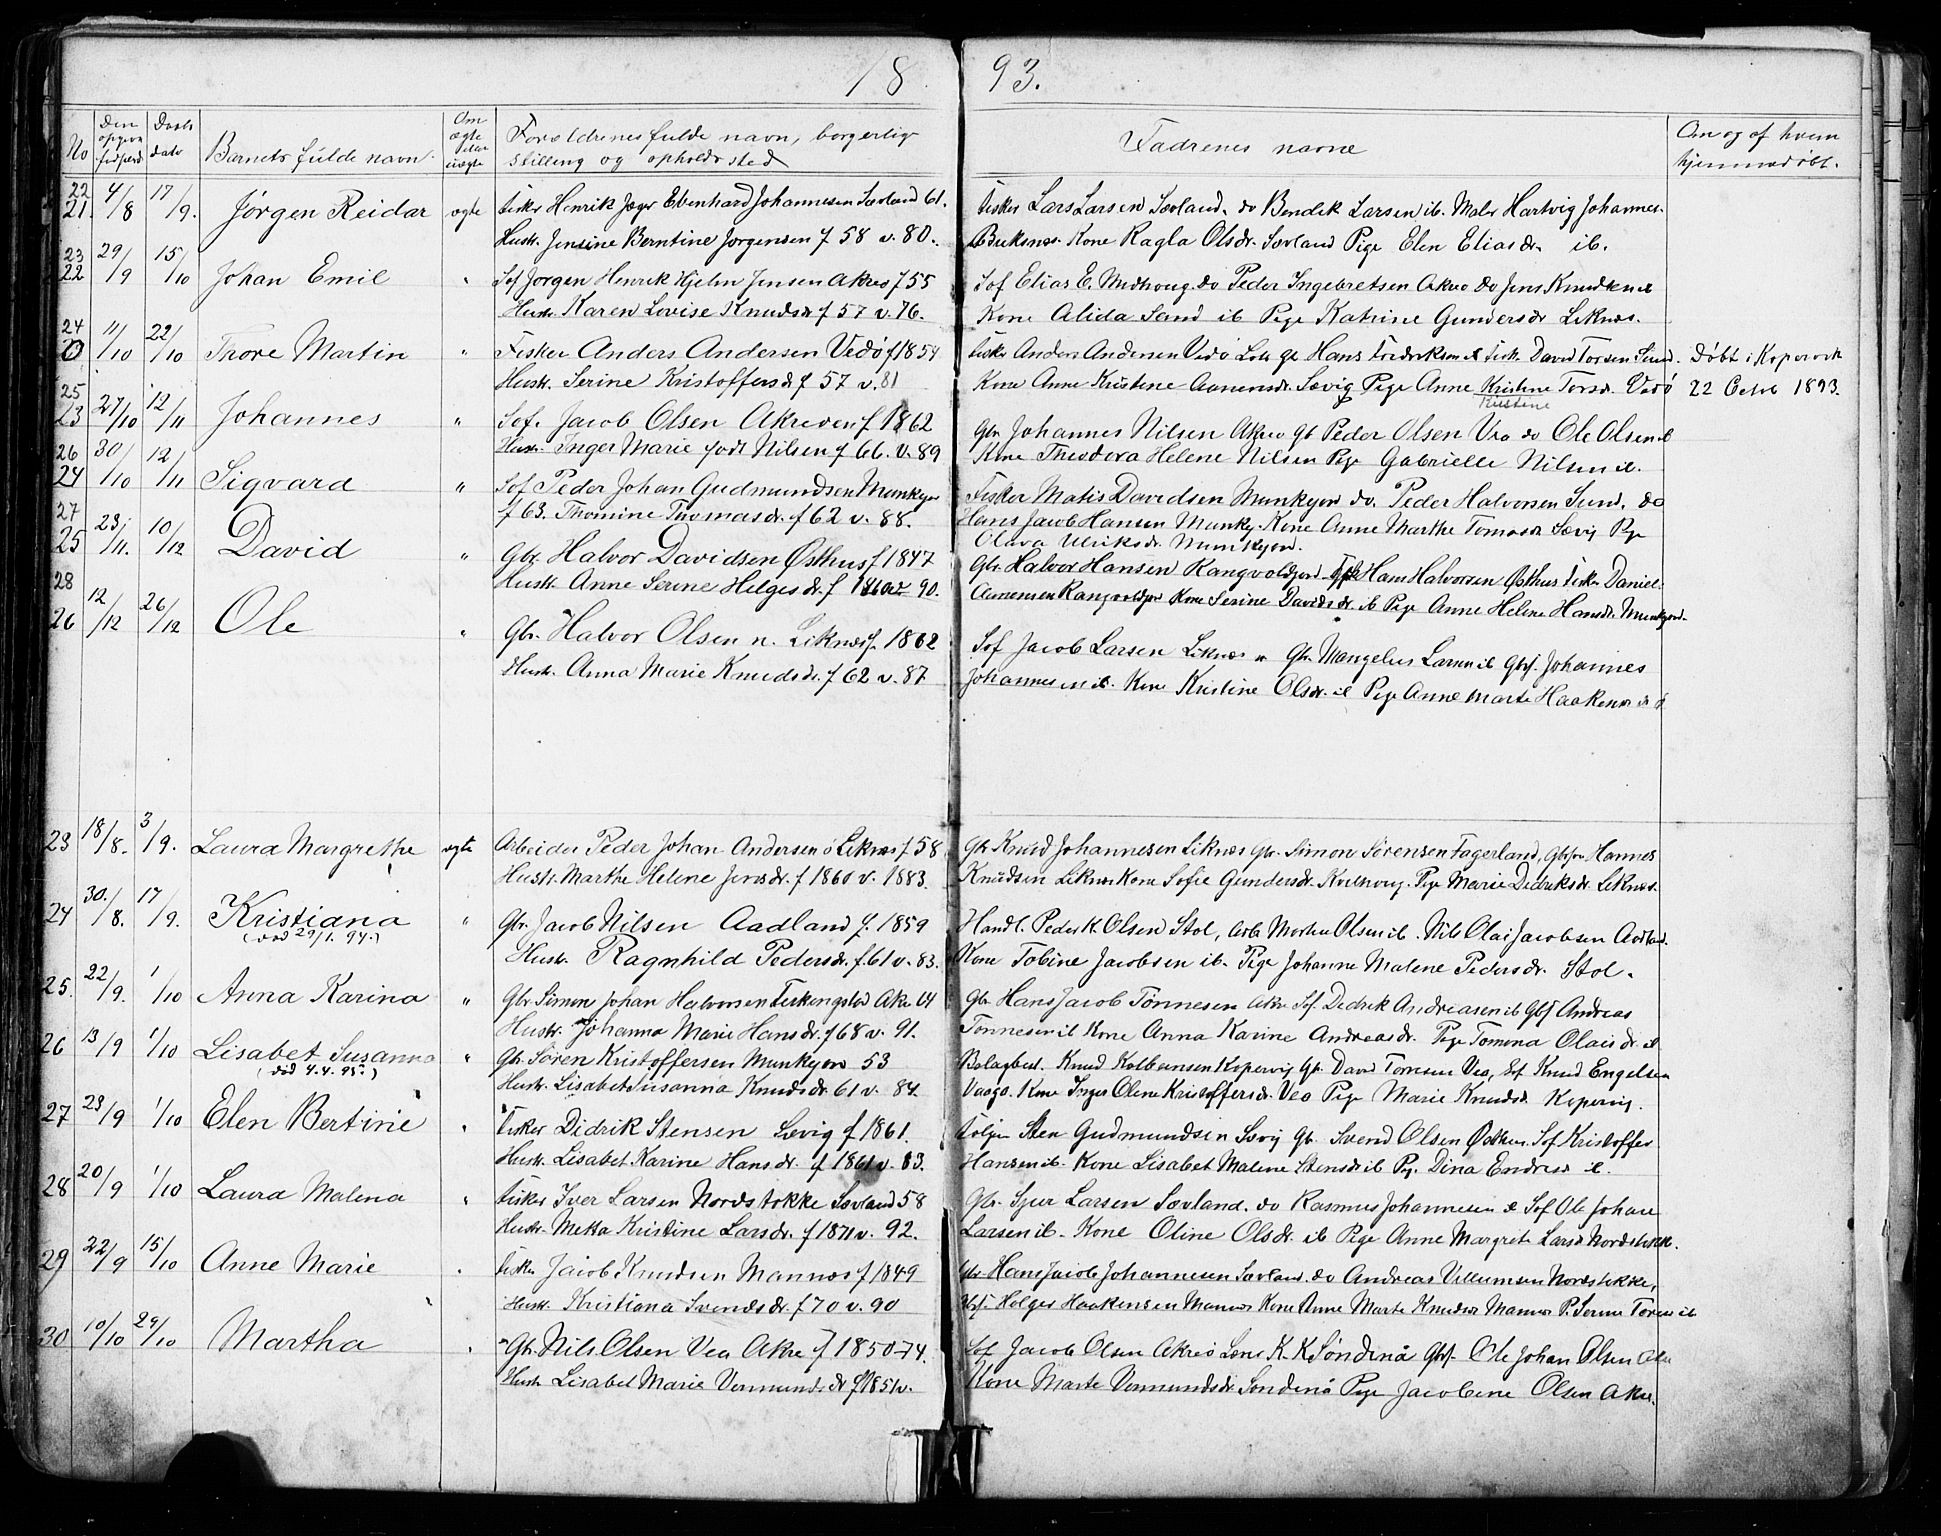 18 93.
No Den opgivn fødselsd. Daabs dato Barnets fulde navn. Om ægte eller uægte Forældrenes fulde navn, borgerlig stilling og opholdssted Fadrenes navne Om og af hvem hjemmedøbt.
22
21. 4/8 17/9. Jørgen Reidar ægte fisker Henrik Jæger Ebenhard Johannesen Sævland 61. fisker Lars Larsen Sævland. do Bendik Larsen ib. Maler Hartvig Johannes.
Hustr. Jensine Berntine Jørgensen f 58 v. 80. Buksnes. Kone Ragla Olsdr. Sævland Pige Elen Eliasdr. ib.
23
22 29/9 15/10 Johan Emil " Sof Jørgen Henrik Hjelm Jensen Akreo f 55 Sof Elias E. Medhoug. do Peder Ingebretsen Akreo do Jens Knudsen ib
Hustr. Karen Lovise Knudsdr f 57 v. 76. Kone Alida Sand ib Pige Katrine Gundersdr Liknes.
24
0 11/10 22/10 Thore Martin " Fisker Anders Andersen Vedø f 1854 fisker Anders Andersen Vedø Hans Fredriksen ib fisk. David Torsen Sund. Døbt i Kopervik
Hustr. Serine Kristoffersd f 57 v. 81 Kone Anne Kristine Aanensdr. Sævig Pige Anne Kristine Torsdr. Vedø 22 Octb 1893.
Kristine
25
23 27/10 12/11 Johannes " Sof. Jacob Olsen Akreven f 1862 Gbr Johannes Nilsen Akreo Gb Peder Olsen Vra do Ole Olsen ib
Hustr. Inger Marie født Nilsen f 66. v. 89 Kone Theodora Helene Nilsen Pige Gabrielle Nilsen ib.
26
24 30/10 12/11 Sigvard " Sof Peder Johan Gudmundsen Munkejor Fisker Matis Davidsen Munkejor do. Peder Halvorsen Sund. do
f 63. Thomine Thomasdr. f 62 v. 88. Hans Jacob Hansen Munkj. Kone Anne Marthe Tomasdr Sævig Pige
Olava Ulriksdr. Munkejord.
27
25 23/11. 10/12 David " Gbr. Halvor Davidsen Østhus f 1847 Gbr. Halvor Hansen Rangvoldjord Hans Halvorsen Østhus fisker Daniel
Hustr. Anne Serine Helgesdr. f 1860 v 90. Aamensen Rangvoldjor Kone Serine Davidsdr. ib Pige Anne Helene Hansdr. Munkjord.
28
26 12/12 26/12 Ole " Gbr. Halvor Olsen n. Liknes f. 1862 Sof Jacob Larsen Liknes n Gbr. Mangelus Larsen ib Gbsf. Johannes
Hustr. Anna Marie Knudsdr. f 62 v. 87 Johannesen ib. Kone Kristine Olsdr. ib Pige Anne Marte Haakensdr
23 18/8. 3/9. Laura Margrethe ægte Arbeider Peder Johan Andersen ø Liknes f 58 Gb Knud Johannesen Liknes Gbr. Simon Sørensen Fagerland, Gbsøn Hannes
Hustr. Marthe Helene Jensdr. f 1860 v. 1883. Knudsen Liknes Kone Sofie Gundersdr. Kvilhoug. Pige Marie Dedriksdr. Liknes.
24 30./8. 17/9. Kristiana " Gbr. Jacob Nilsen Aadland f. 1859 Handl. Peder K. Olsen Stol, Arb. Morten Olsen ib. Nils Olai Jacobsen Aadland.
(død 29/1. 94.) Hustr Ragnhild Pedersdr. f. 61 v. 83. Kone Tobine Jacobsen ib. Pige Johanne Malene Pedersdr. Stol.
25. 22/9. 1/10 Anna Karina " Gbr Simon Johan Halvorsen Akre 64 Gbr Hans Jacob Tønnesen Akre Sof. Dedrik Andreasen ib Gbsf Andreas
Hustr. Johanna Marie Hansdr. f 68 v. 91. Tønnesen ib Kone Anna Karine Andreasdr. Pige Tomena Olaisdr. ib
26 13/9 1/10 Lisabet Susanna " Gbr. Søren Kristoffersen Munkejor 53 Knud Kolbensen Kopervig Gb. David Torresen Vea, Sof Knud Engelsen
(død 4.4. 95.) Hustr. Lisabet Susanna Knudsdr. 61 v. 84. Vaage. Kone Inger Oline Kristoffersdr. Vea Pige Marie Knudsdr Kopervig.
27 23/9 1/10 Elen Bertine " fisker Didrik Stensen Sævig f 1861. Sten Gudmundsen Sævig Gb. Svend Olsen Østhus. Sof. Kristoffer
Hustr. Lisabet Karine Hansdr. f 1861 v. 83. Hansen ib. Kone Lisabet Malene Stensdr ib Pg. Dina Endresdr ib.
28 20/9 1/10 Laura Malena " fisker Iver Larsen Nordstokke Sævland 58 Gbr. Sjur Larsen Sævland. do Rasmus Johannesen ib Sof Ole Johan
Hustr. Metta Kristine Larsdr. f 1871 v. 92. Larsen ib. Kone Oline Olsdr. ib Pige Anne Margrete Larsdr Nordstokk.
29 22/9 15/10 Anne Marie " fisker Jacob Knudsen Mannes f 1849 Gbr. Hans Jacob Johannesen Sævland. do Andreas Villumsen Nordstokke,
Hustr. Kristiana Svendsdr. f 70 v. 90 Gbsf. Holger Haakensen Mannes Kone Anne Marte Knudsdr Mannes P. Serine ib
30 10/10 29/10 Martha " Gbr. Nils Olsen Vea Akre f 1850-74. Sof Jacob Olsen Akreo Læns K. K Søndenå Gbsf. Ole Johan Olsen Akre
Hustr Lisabet Marie Vermundsdr f 1851 v. Kone Marte Vermundsdr Søndenå Pige Jacobine Olsen Akre.